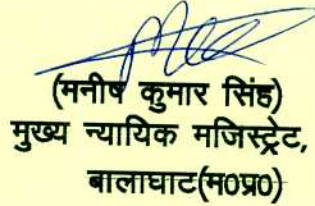 (मनीष कुमार सिंह)
मुख्य न्यायिक मजिस्ट्रेट,
बालाघाट(म०प्र०)